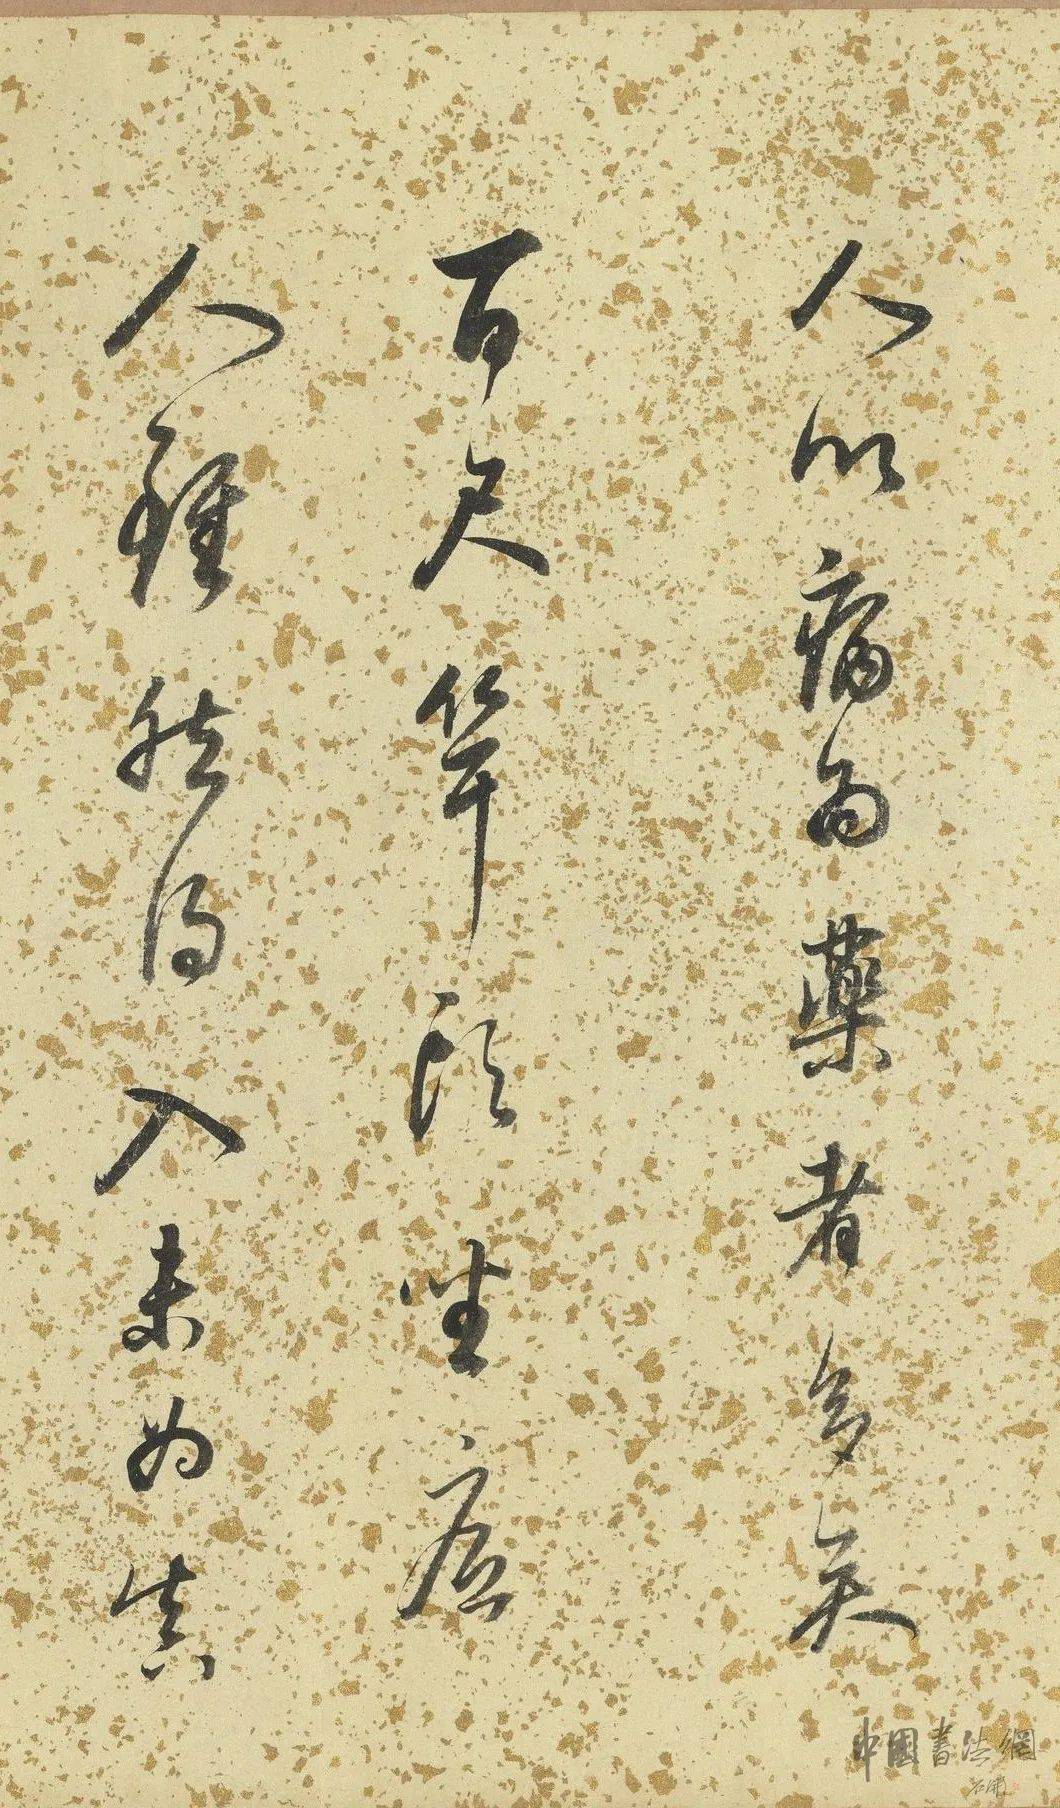 人以病為藥者多矣
百尺竿頭坐底
人雖然得入未為真
中國書法網